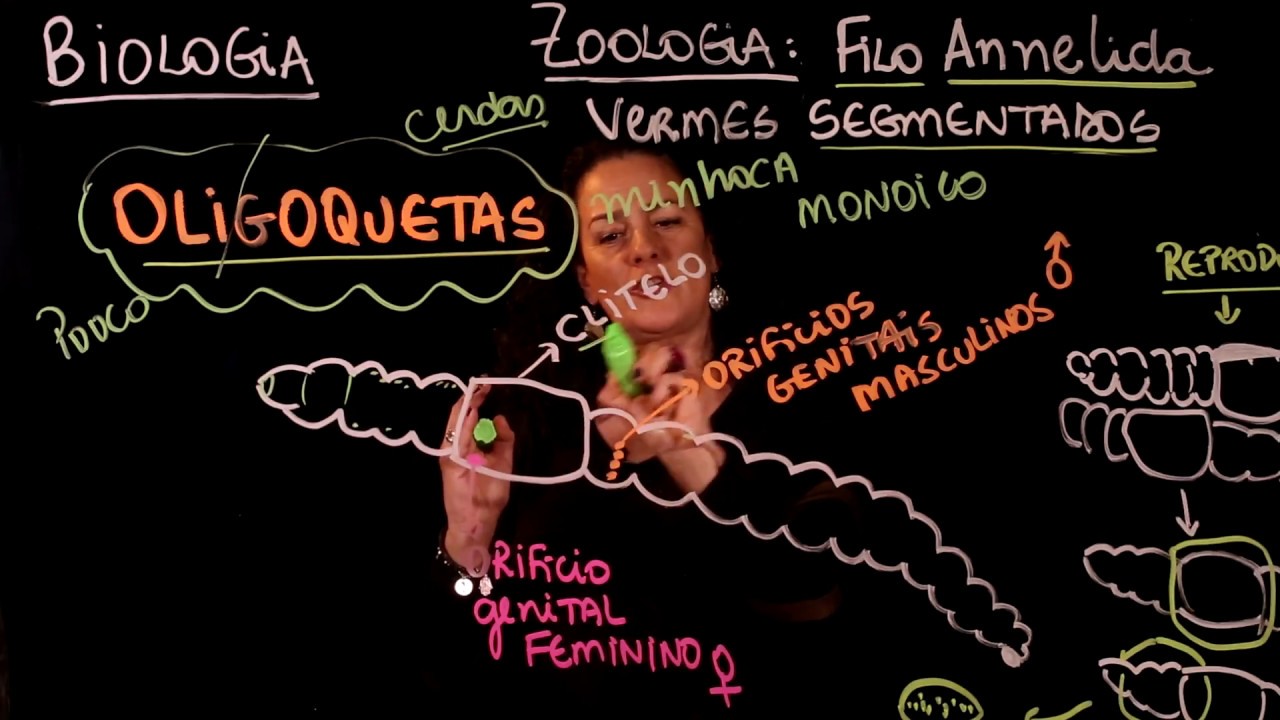 BiOLOGiA
ZOOLOGiA: FiLO Annelida
VERMES SEGMENTADOS
cerdas
OLiGOQUETAS
minhocA
MONOiCO
POUCO
CLiTELO
ORiFiCiOS
GENiTAiS
MASCULiNOS ♂
REPROD
ORiFiCiO
geniTAL
FEMiNiNO ♀